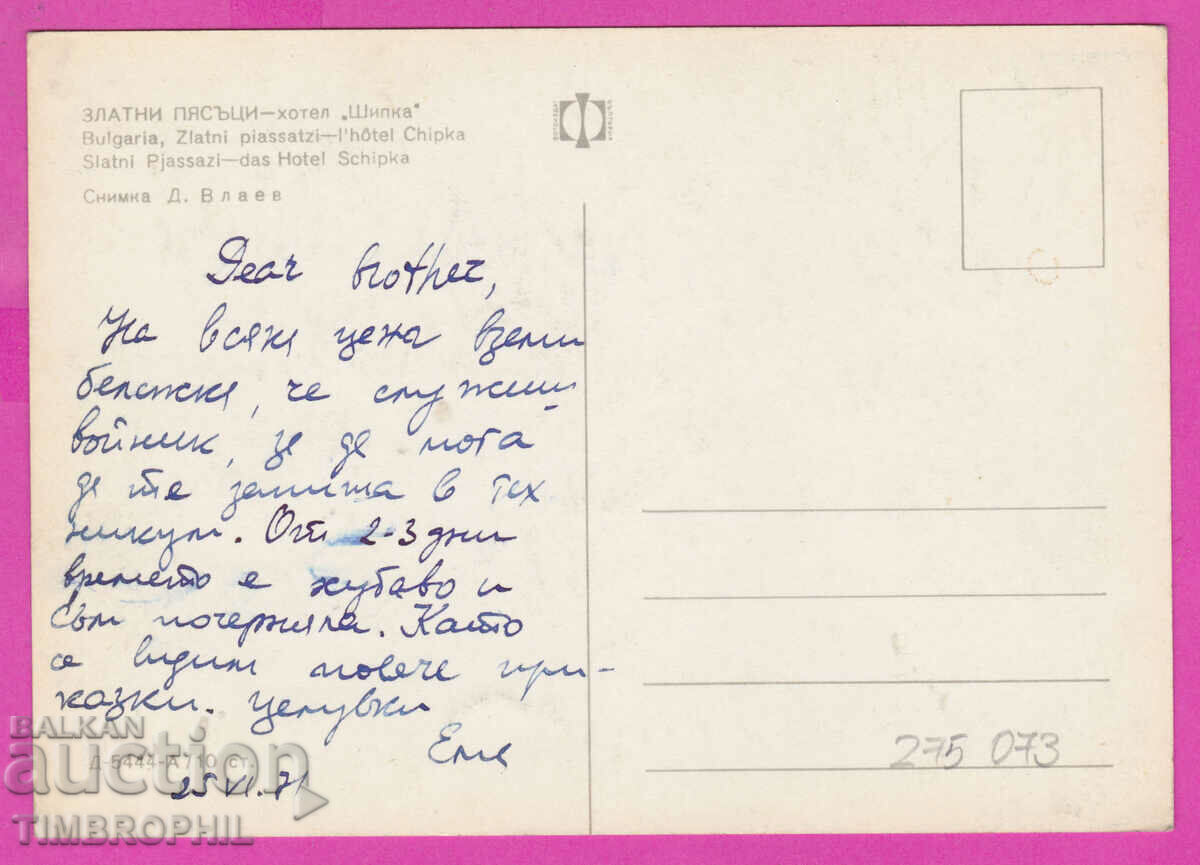 ЗЛАТНИ ПЯСЪЦИ—хотел „Шипка"
Bulgaria, Zlatni piassatzi—l'hôtel Chipka
Slatni Pjassazi—das Hotel Schipka
Снимка Д. Влаев
Dear brother,
На всяка цена вземи
бележка, че служиш
войник, за да мога
да те запиша в тех
никум. От 2-3 дни
времето е хубаво и
съм почерняла. Като
се видим повече при-
казки. Целувки
Еми
Д-5444-А 710 ст.
25 VI. 71
275 073
BALKAN
auction
TIMBROPHIL